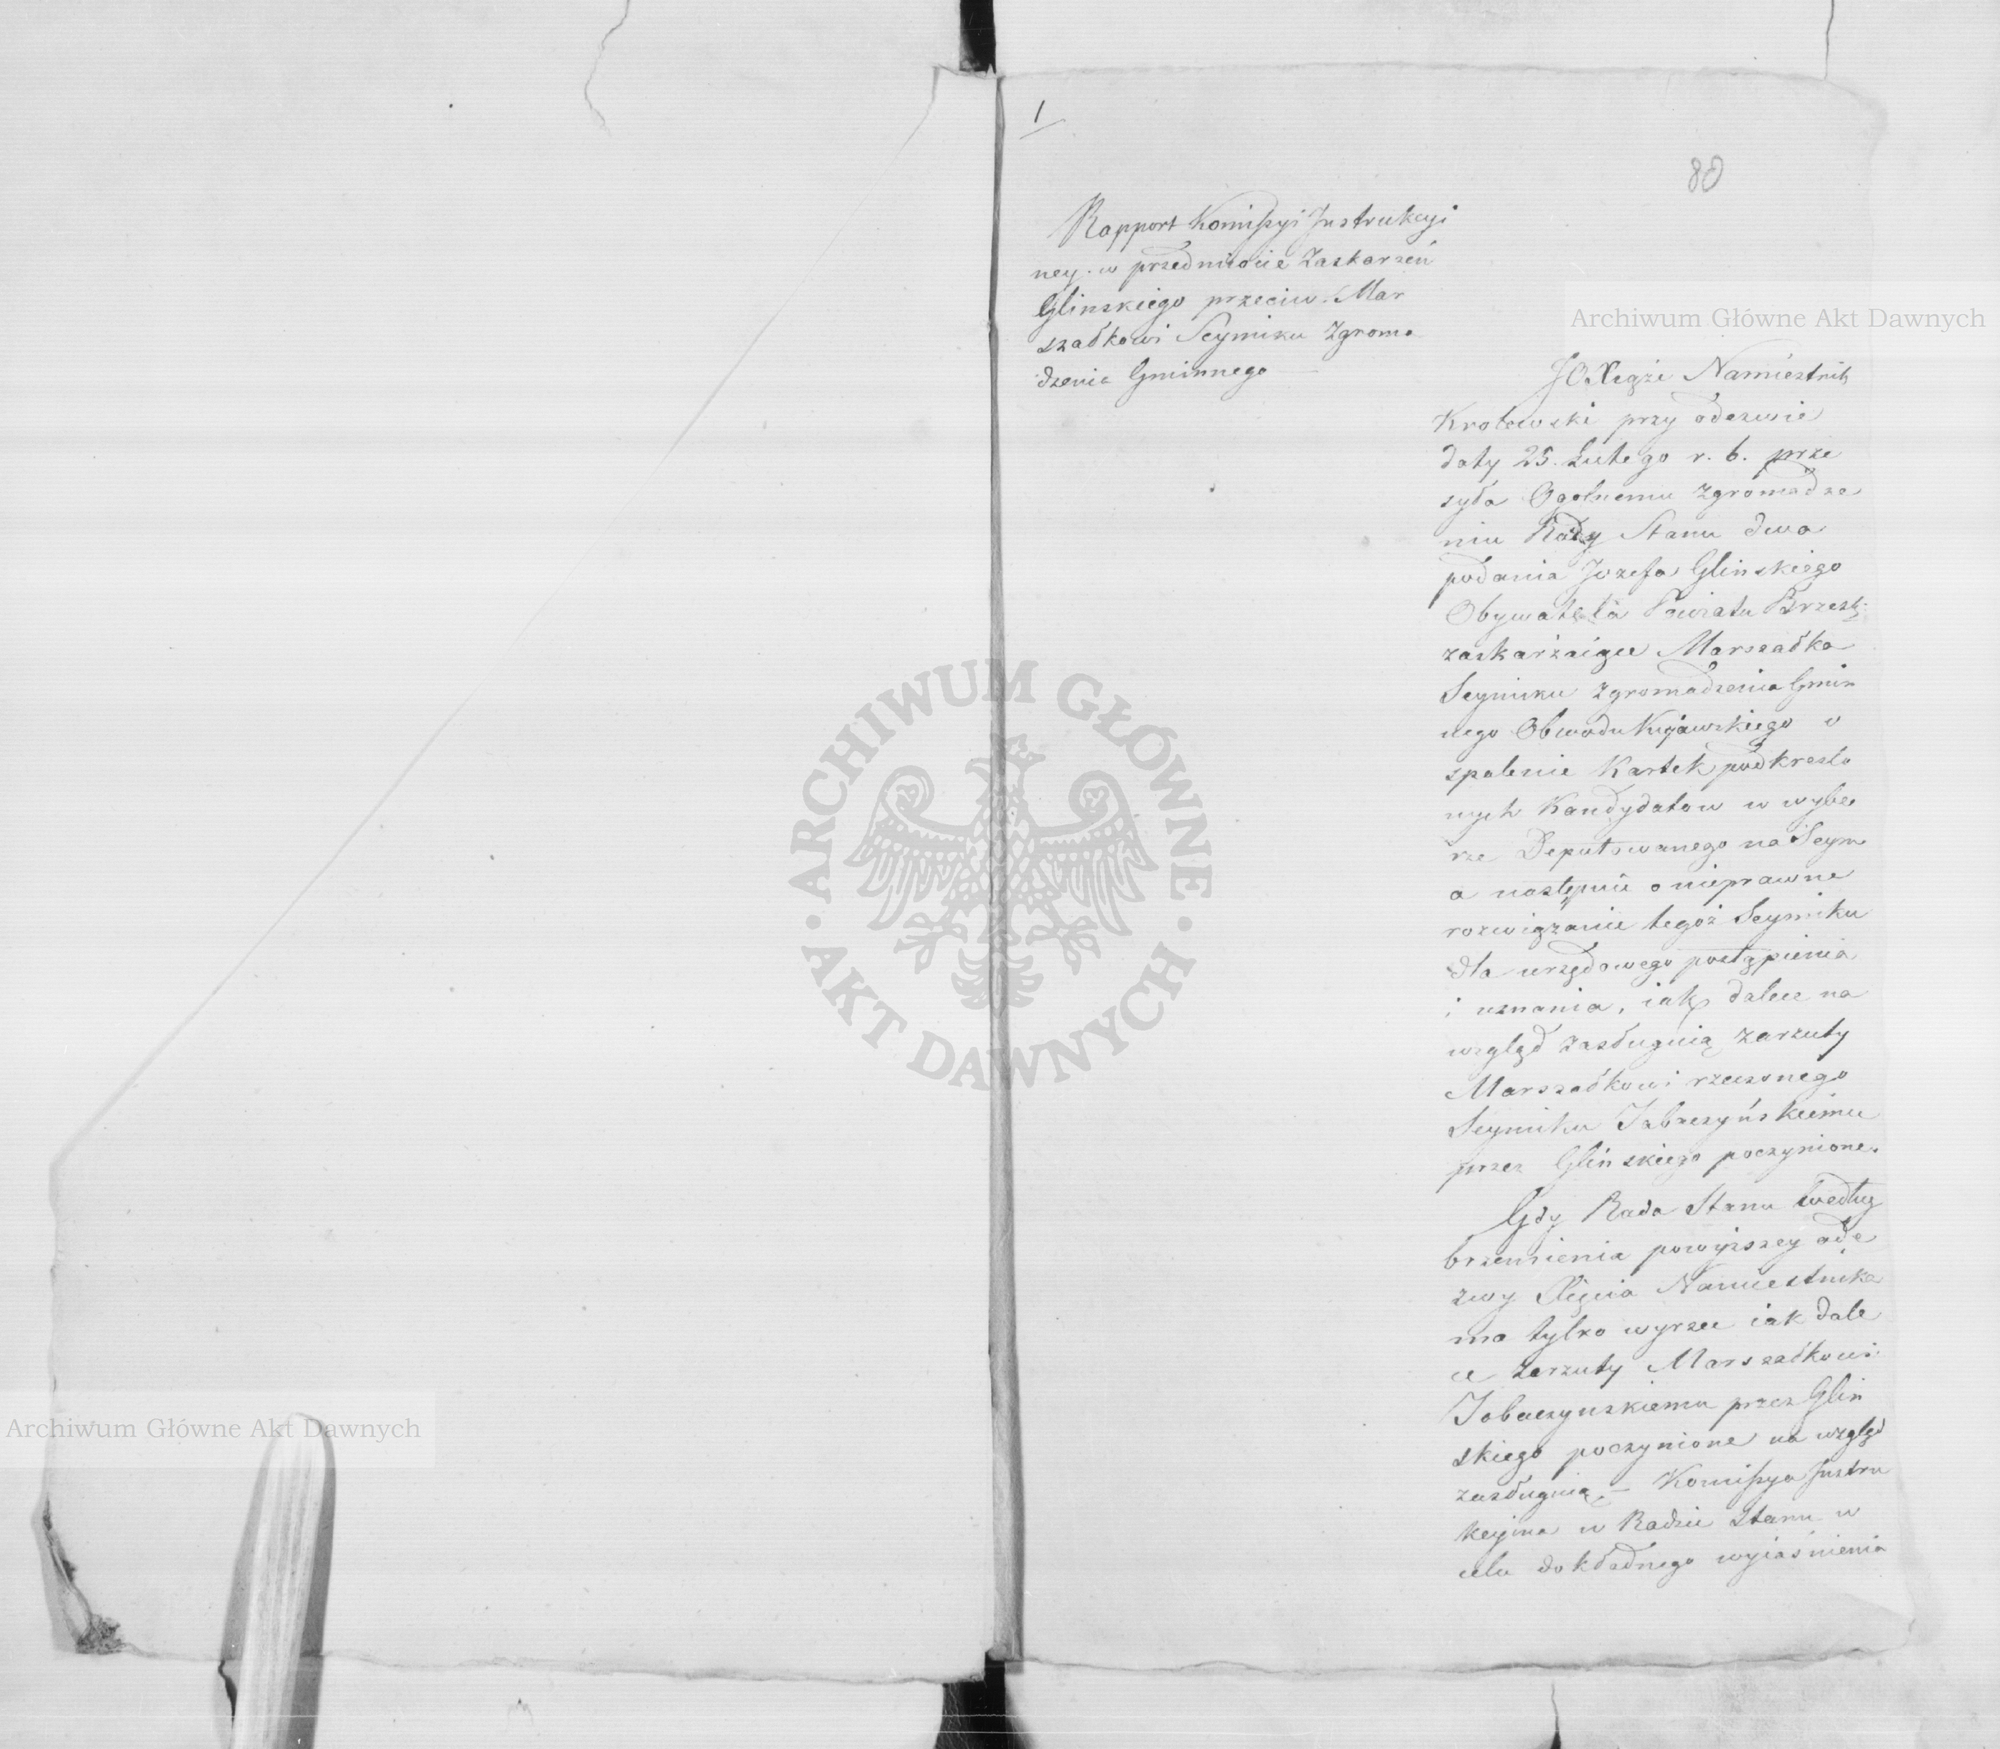 1
80
Rapport Komissyi Instrukcyi
ney. w przedmiocie Zaskarzeń
Glinskiego przeciw. Mar
szałkowi Seymiku Zgroma
dzenia Gminnego
JO Xiąże Namiestnik
Krolewski przy odezwie
daty 25. Lutego r. b. prze
syła Ogolnemu Zgromadze
niu Rady Stanu dwa
podania Jozefa Glinskiego
Obywatela Powiatu Brzesk:
zaskarżaiące Marszałka
Seymiku Zgromadzenia Gmin
nego Obwodu Kujawskiego o
spalenie Kartek podkreslo
nych Kandydatow w wybo
rze Deputowanego na Seym
a nostępnie o nieprawne
rozwiązanie tegoż Seymiku
dla urzędowego postąpienia
i uznania, iak dalece na
wzgląd zasługuią zarzuty
Marszałkowi rzeczonego
Seymiku Tabaczyńskiemu
przez Glińskiego poczynione.
Gdy Rada Stanu według
brzemienia powyższey ode
zwy Xięcia Namiestnika
ma tylko wyrzec iak dale
ce zarzuty Marszałkowi
Tobaczynskiemu przez Glin
skiego poczynione na wzgląd
zasługuią – Komissya Instru
kcyina w Radzie Stanu w
celu dokładnego wyiaśnienia
Archiwum Główne Akt Dawnych
Archiwum Główne Akt Dawnych
ARCHIWUM GŁÓWNE
· AKT DAWNYCH ·